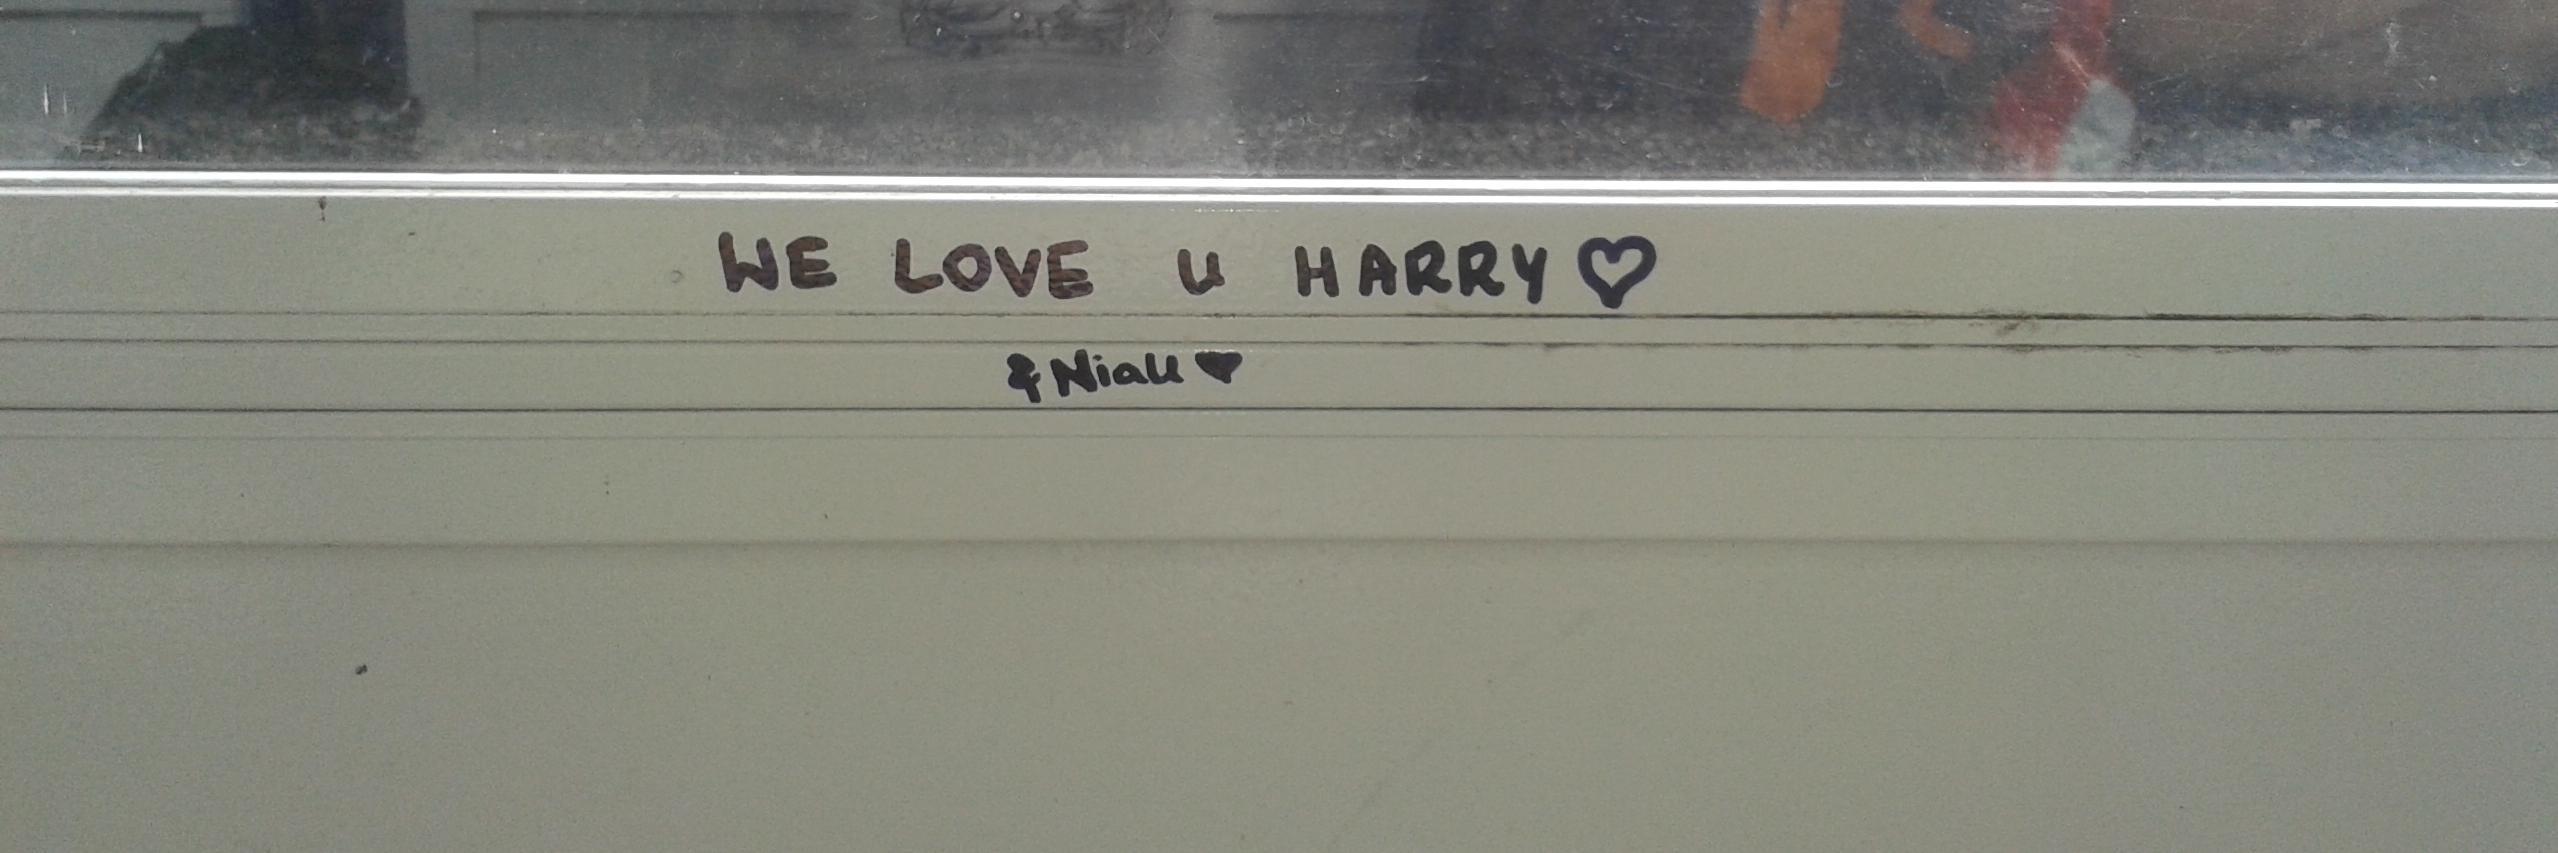 WE LOVE u HARRY♡
& Niall ♥